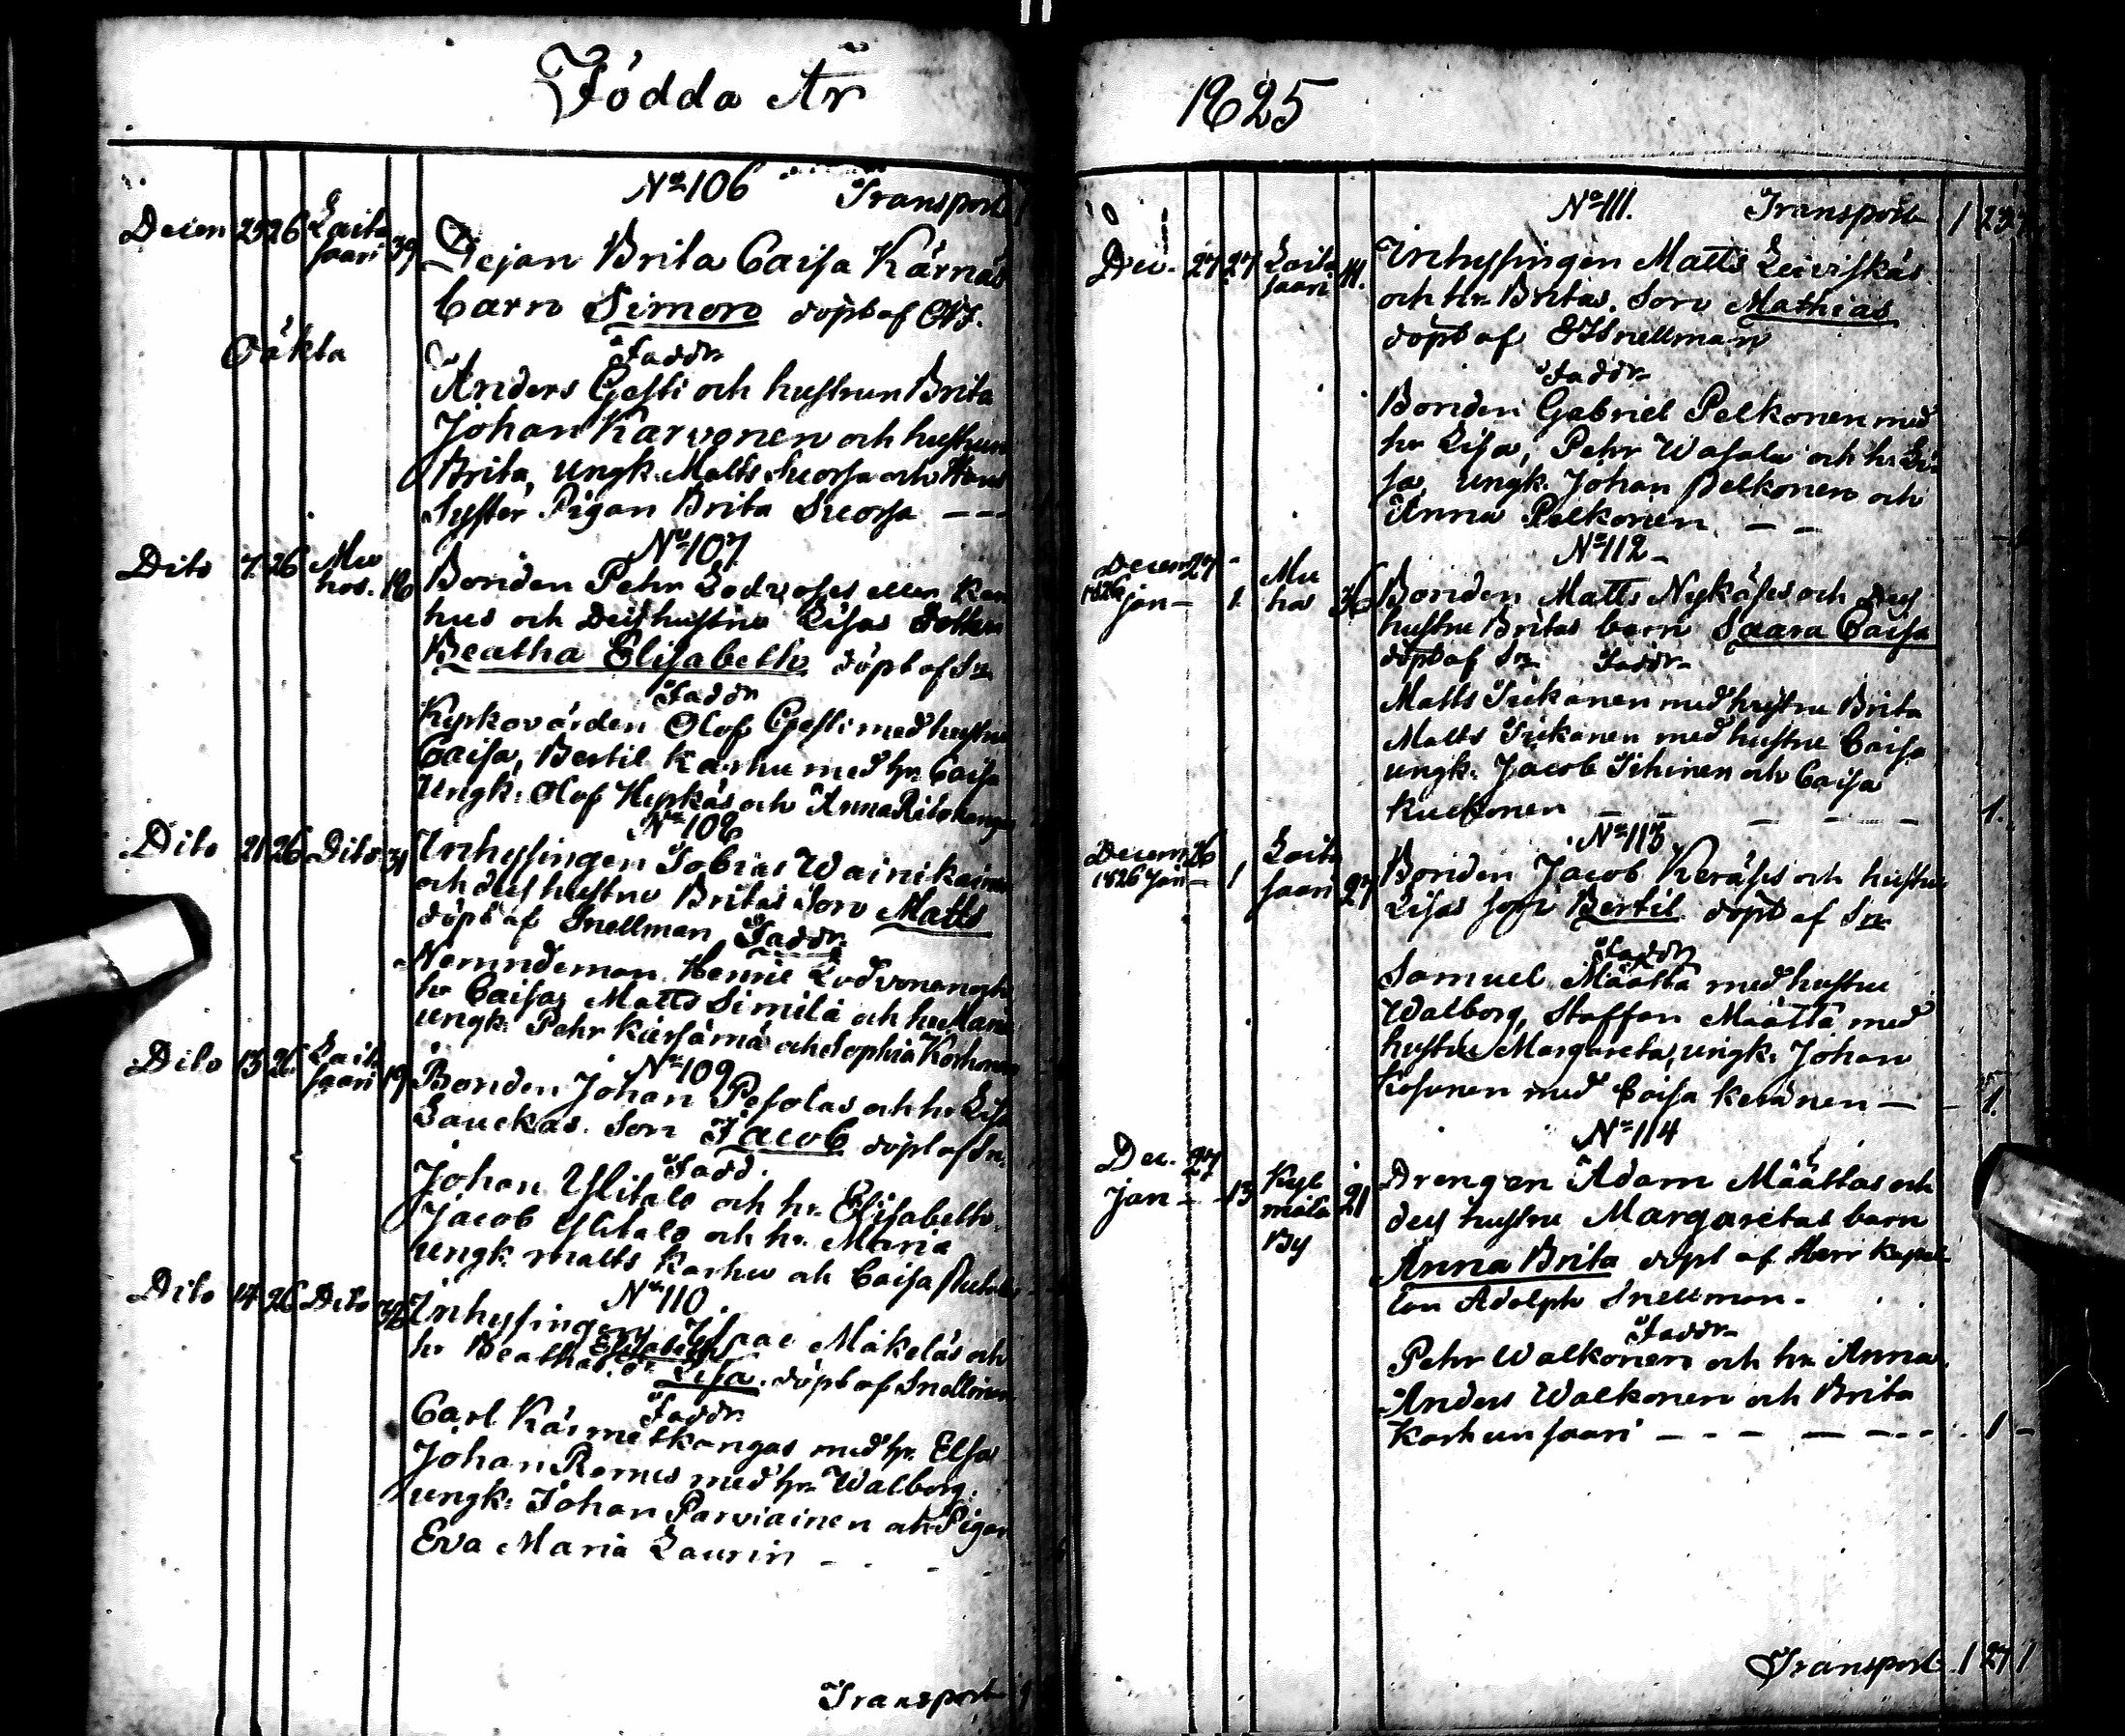 Födda År
1825
No 106 Transport
Decem 25 26 Laita
saari 39 Pejan Brita Caisa Kärnäs
barn Simon döpt af
Oäkta Faddr
Anders Gesti och hustrun Brita
Johan Karvonen och hustrun
Brita, ungk. Matts Suorsa och Hans
Syster Pigan Brita Suorsa - - -
No 107
Dito 7 26 Mu
hos. 18 Bonden Pehr Lodvoses eller Kar
hus och dess hustru Lisas Dotter
Beatha Elisabeth döpt af Sn.
Faddr
Kyrkovärden Olof Gesti med hustru
Caisa, Bertil Karhu med hr Caisa
Ungk. Olof Hyrkäs och Anna
No 108
Dito 21 26 Dito 31 Inhysingen Tobias Wainikainens
och dess hustru Britas Son Matts
döpt af Snellman Faddr.
Nemndeman Henric Lodvonen och
hr Caisa, Matts Similä och hr Maria
ungk. Pehr och Sophia Korhonen
No 109
Dito 13 26 Laita
saari 19 Bonden Johan Pesolas och hr Lisa
Lauckas. Son Jacob döpt af Sn.
Fadd.
Johan Ylitalo och hr. Elisabeth.
Jacob Ylitalo och hr. Maria
ungk. Matts Karhu och Caisa
No 110
Dito 14 26 Dito 38 Inhysingen Isaac Mäkeläs och
Elisabeth
hr Beathas. dr Lisa. döpt af Snellman
Faddr
Carl Kärmetkangas med hr. Elsa
Johan Romus med hr. Walborg.
ungk. Johan Parviainen och Pigan
Eva Maria Laurin
Transport
No 111. Transport 1 23
Dec. 27 27 Laita
saari 11. Inhysingen Matts Leiviskäs
och hr Britas. Son Mathias
döpt af Snellman
Faddr
Bonden Gabriel Pelkonen med
hr Lisa, Pehr Wasala och hr Li
sa ungk. Johan Pelkonen och
Anna Pelkonen - -
No 112
Decem 27
1826 jan - 1. Mu
hos 36 Bonden Matts Nykäses och dess
hustru Britas barn Saara Caisa
döpt af Sn. Faddr
Matts Tiikanen med hustru Brita
Matts Tiikanen med hustru Caisa
ungk. Jacob Tihinen och Caisa
Kuckonen - - - - - 1.
No 113
Decem 26
1826 Jan - 1 Laita
saari 27 Bonden Jacob Keräses och hustru
Lisas son Bertil döpt af Sn.
Faddr
Samuel Määtta med hustru
Walborg, Staffan Määttä med
hustru Margareta, ungk. Johan
Kosonen med Caisa Keränen - - 1.
No 114
Dec. 27
Jan - 13 Kyl
mälä
By 21 Drengen Adam Määttas och
dess hustru Margaretas barn
Anna Brita döpt af Herr Kapel
lan Adolph Snellman.
Faddr
Pehr Walkonen och hr Anna
Anders Walkonen och Brita
Korhunsaari - - - - - - 1 -
Transport 1 27 1